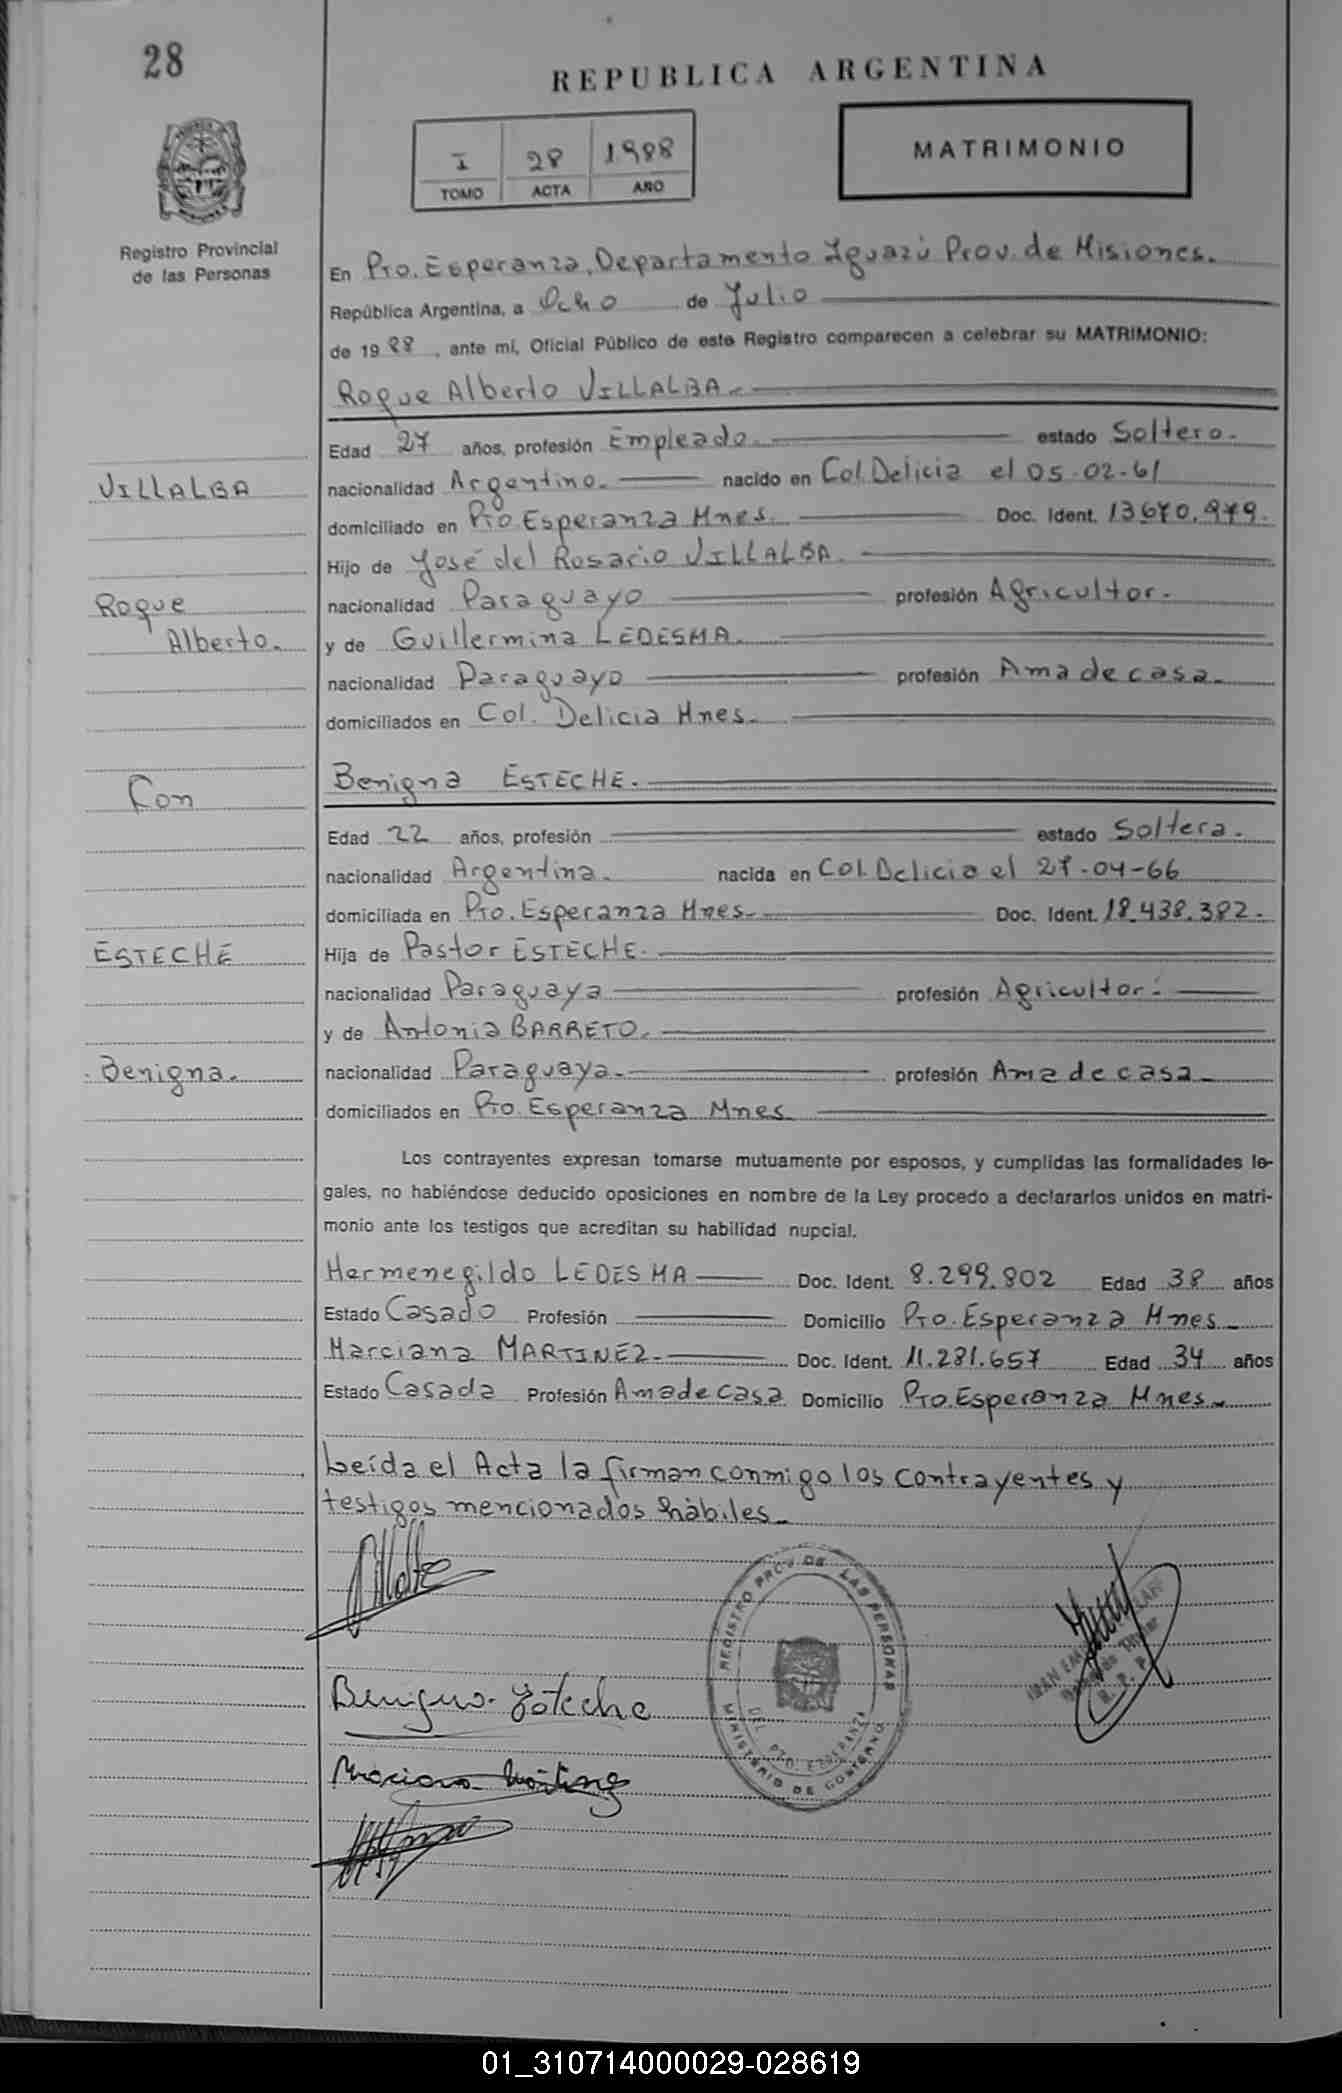 28
REPUBLICA ARGENTINA
I 28 1988
TOMO ACTA AÑO
MATRIMONIO
Registro Provincial
de las Personas
En Pto. Esperanza, Departamento Iguazú Prov. de Misiones.
República Argentina, a Ocho de Julio
de 1988, ante mí, Oficial Público de este Registro comparecen a celebrar su MATRIMONIO:
Roque Alberto VILLALBA.
Edad 27 años, profesión Empleado. estado Soltero.
VILLALBA
nacionalidad Argentino. nacido en Col. Delicia el 05-02-61
domiciliado en Pto Esperanza Mnes. Doc. Ident. 13670.979.
Hijo de José del Rosario VILLALBA.
Roque
nacionalidad Paraguayo profesión Agricultor.
Alberto.
y de Guillermina LEDESMA.
nacionalidad Paraguayo profesión Ama de casa.
domiciliados en Col. Delicia Mnes.
Con
Benigna ESTECHE.
Edad 22 años, profesión estado Soltera.
nacionalidad Argentina. nacida en Col. Delicia el 27-04-66
domiciliada en Pto. Esperanza Mnes. Doc. Ident. 18.438.382.
ESTECHE
Hija de Pastor ESTECHE.
nacionalidad Paraguaya profesión Agricultor.
y de Antonia BARRETO.
Benigna.
nacionalidad Paraguaya. profesión Ama de casa
domiciliados en Pto. Esperanza Mnes
Los contrayentes expresan tomarse mutuamente por esposos, y cumplidas las formalidades le-
gales, no habiéndose deducido oposiciones en nombre de la Ley procedo a declararlos unidos en matri-
monio ante los testigos que acreditan su habilidad nupcial.
Hermenegildo LEDESMA Doc. Ident. 8.299.802 Edad 38 años
Estado Casado Profesión Domicilio Pto. Esperanza Mnes
Marciana MARTINEZ. Doc. Ident. 11.281.657 Edad 34 años
Estado Casada Profesión Ama de casa Domicilio Pto. Esperanza Mnes.
Leída el Acta la firman conmigo los contrayentes y
testigos mencionados hábiles
REGISTRO PROV. DE LAS PERSONAS
DEL. PTO. ESPERANZA
MINISTERIO DE GOBIERNO
Benigna Esteche
Marciana Martinez
01_310714000029-028619